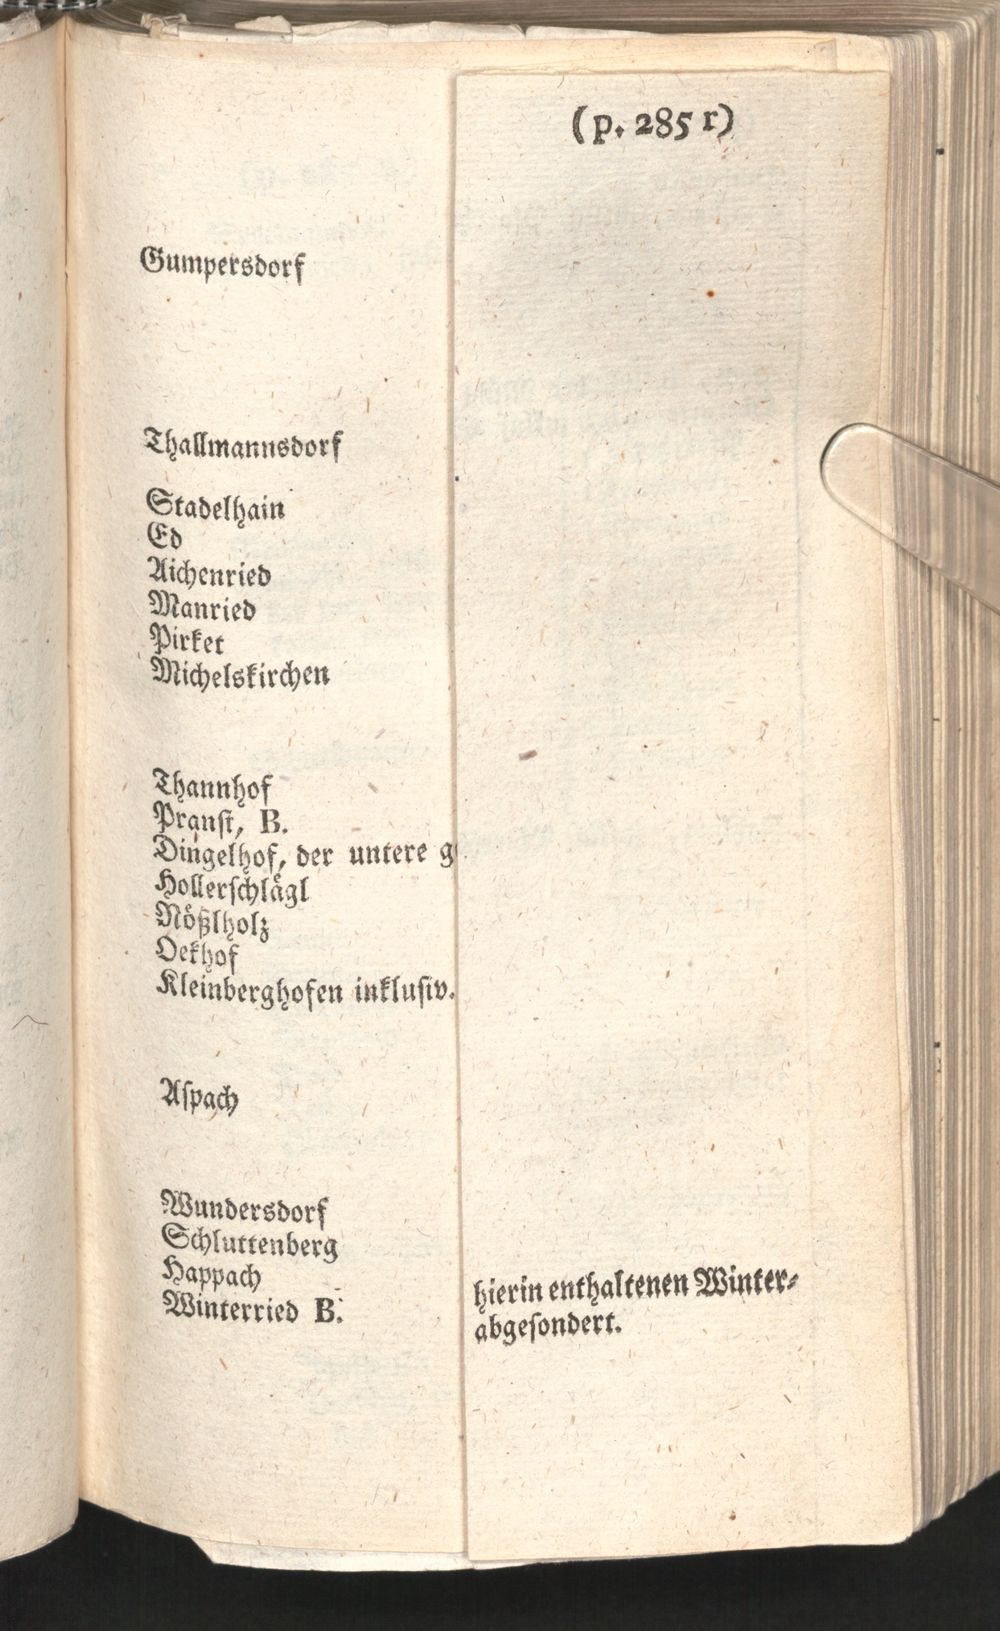 (p. 285 r)
Gumpersdorf
Thallmannsdorf
Stadelhain
Ed
Aichenried
Manried
Pirket
Michelskirchen
Thannhof
Pranſt, B.
Dingelhof, der untere g
Hollerſchlägl
Nößlholz
Oekhof
Kleinberghofen inkluſiv.
Aſpach
Wundersdorf
Schluttenberg
Happach
Winterried B.
hierin enthaltenen Winter-
abgeſondert.